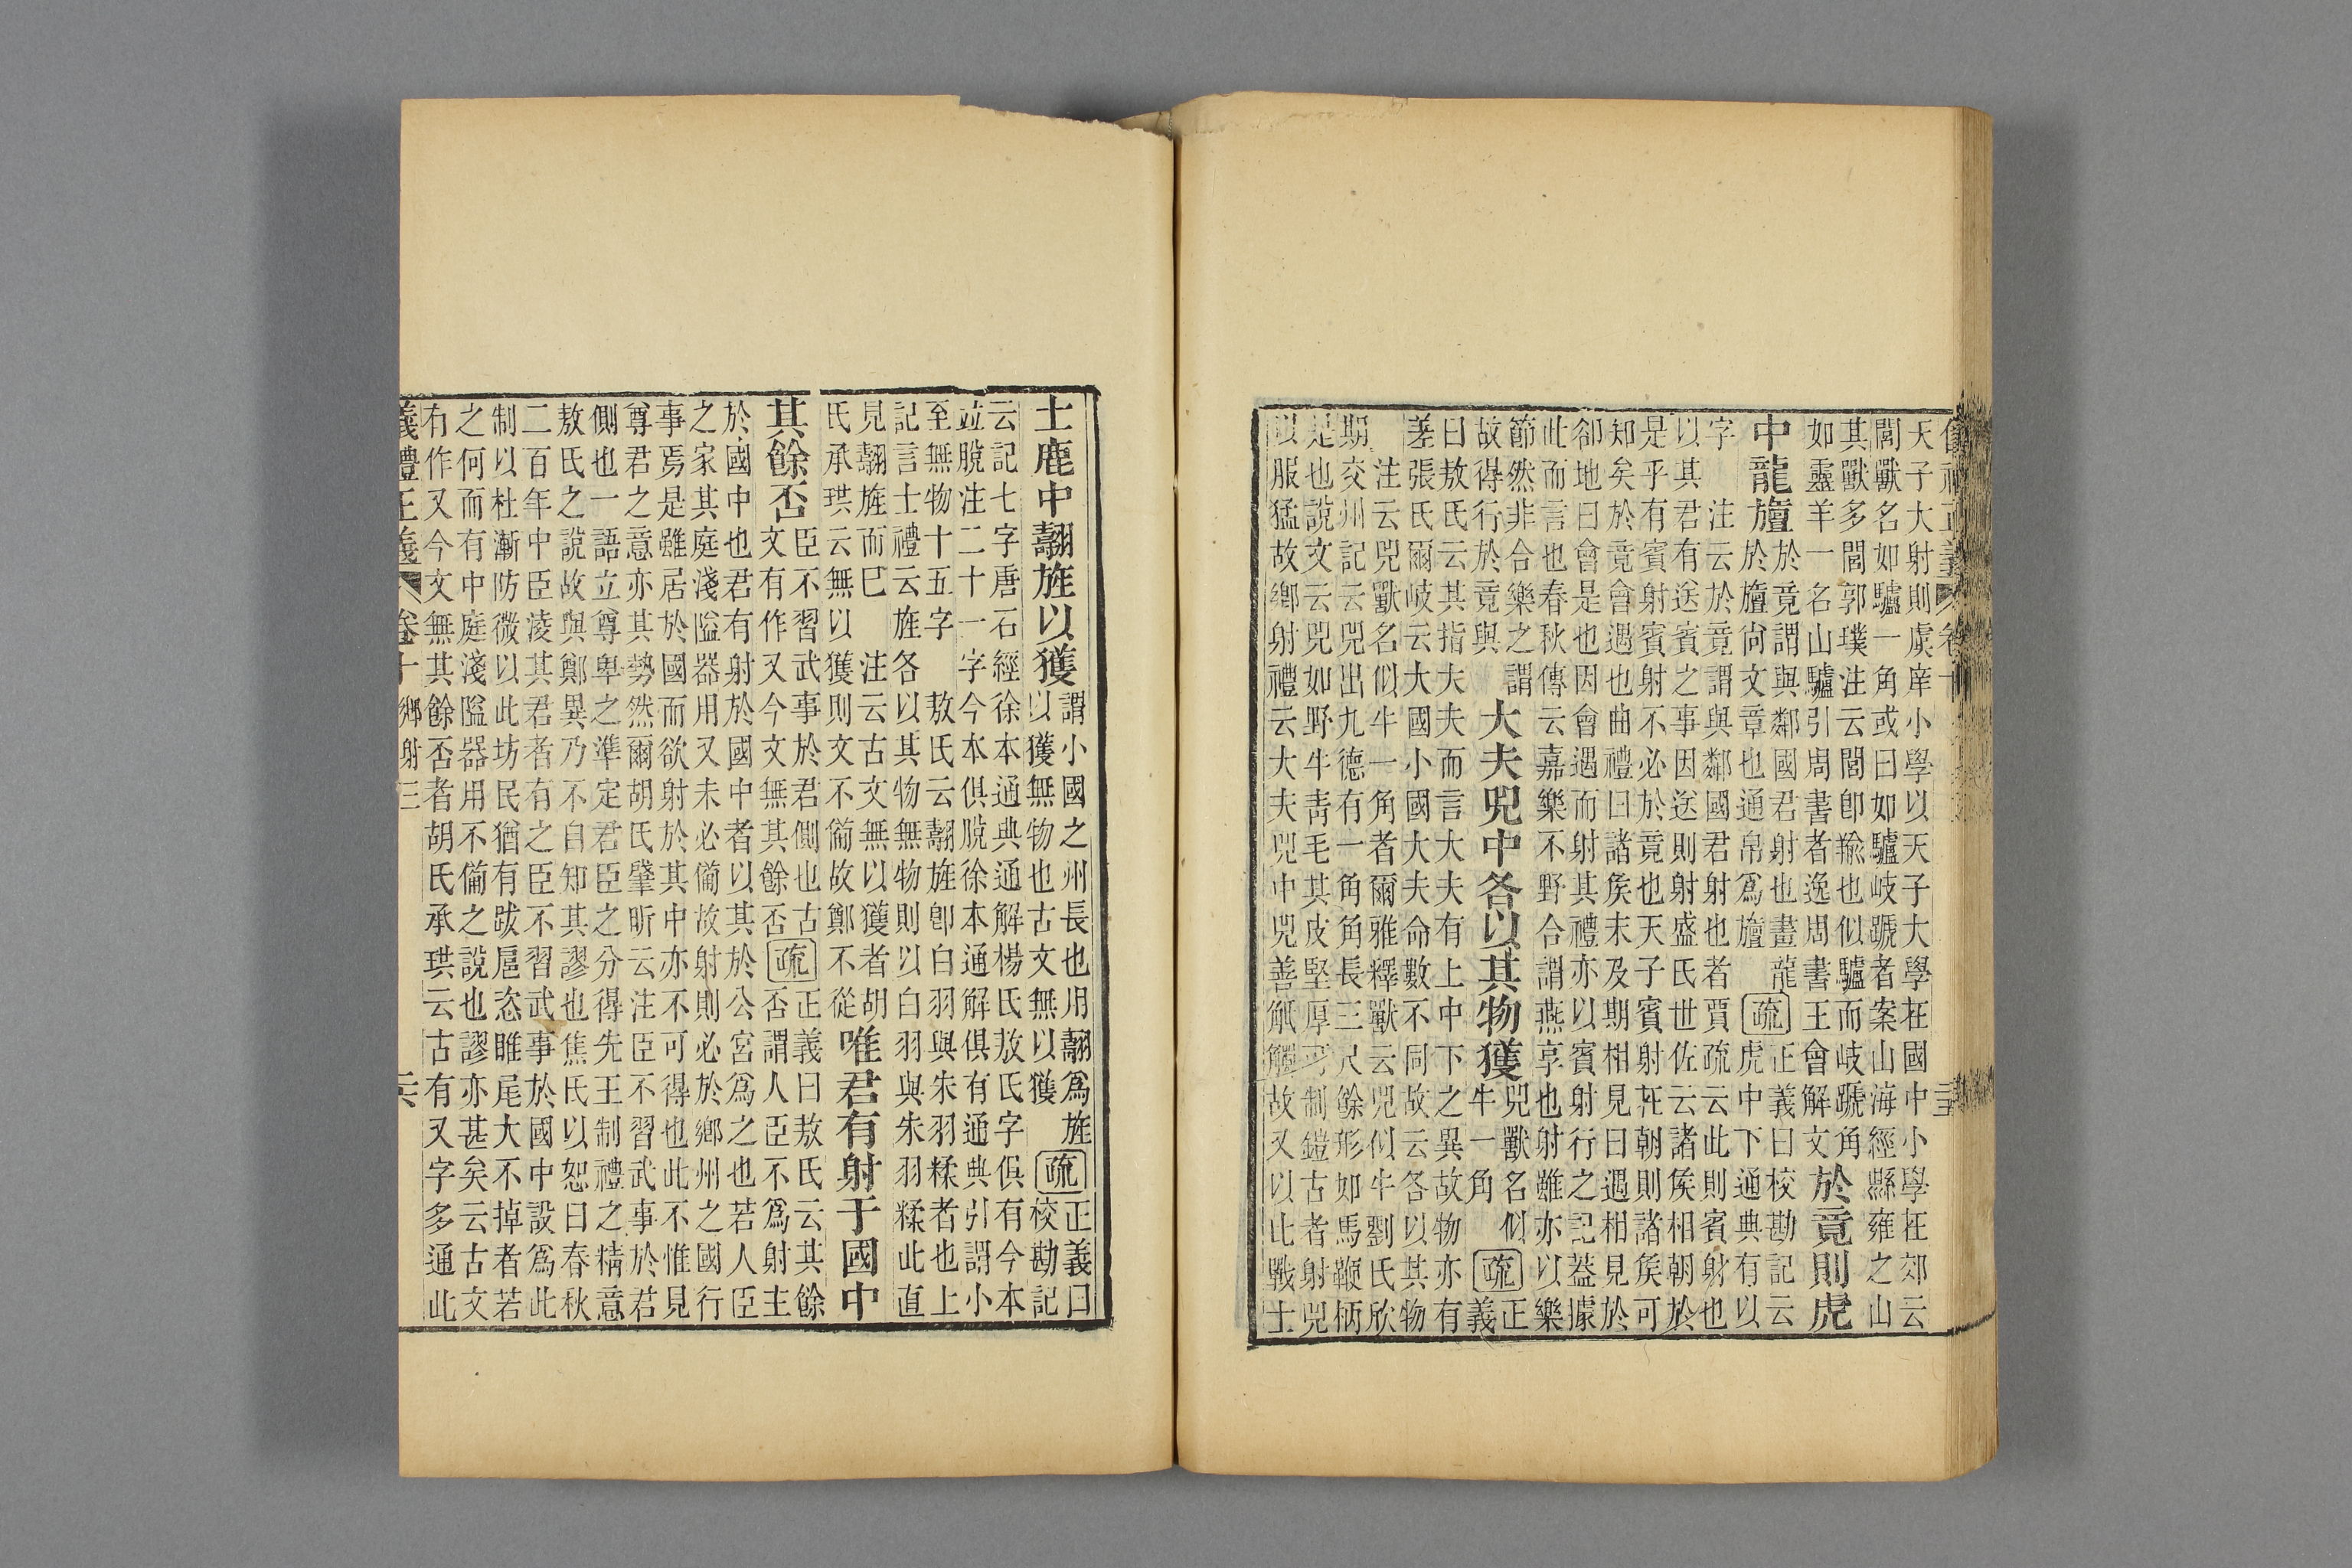 儀禮正義 卷十
天子大射則虞庠小學以天子大學在國中小學在郊云
閭獸名如驢一角或曰如驢岐蹏者案山海經縣雍之山
其獸多閭郭璞注云閭卽羭也似驢而岐蹏角
如靈羊一名山驢引周書者逸周書王會解文
於竟則虎
中龍旜
於竟謂與鄰國君射也畫龍
於旜尙文章也通帛爲旜
疏
正義曰校勘記云
虎中下通典有以
字 注云於竟謂與鄰國君射也者賈疏云此則賓射也
以其君有送賓之事因送則射盛氏世佐云諸矦相朝於
是乎有賓射賓射不必於竟也天子賓射在朝則諸矦可
知矣於竟會遇也曲禮曰諸矦未及期相見曰遇相見於
卻地曰會是也因會遇而射其禮亦以賓射行之記蓋據
此而言也春秋傳云嘉樂不野合謂燕享也射雖亦以樂
節然非合樂之謂
故得行於竟與
大夫兕中各以其物獲
兕獸名似
牛一角
疏
正
義
曰敖氏云其指夫夫而言大夫有上中下之異故物亦有
差張氏爾岐云大國小國大夫命數不同故云各以其物
注云兕獸名似牛一角者爾雅釋獸云兕似牛劉氏欣
期交州記云兕出九德有一角角長三尺餘形如馬鞭柄
是也說文云兕如野牛靑毛其皮堅厚可制鎧古者射兕
以服猛故鄉射禮云大夫兕中兕善觝觸故又以此戰士
士鹿中翿旌以獲
謂小國之州長也用翿爲旌
以獲無物也古文無以獲
疏
正義曰
校勘記
云記七字唐石經徐本通典通解楊氏敖氏字俱有今本
竝脫注二十一字今本俱脫徐本通解俱有通典引謂小
至無物十五字 敖氏云翿旌卽白羽與朱羽糅者也上
記言士禮云旌各以其物無物則以白羽與朱羽糅此直
見翿旌而已 注云古文無以獲者胡
氏承珙云無以獲則文不備故鄭不從
唯君有射于國中
其餘否
臣不習武事於君側也古
文有作又今文無其餘否
疏
正義曰敖氏云其餘
否謂人臣不爲射主
於國中也君有射於國中者以其於公宮爲之也若人臣
之家其庭淺隘器用又未必備故射則必於鄉州之國行
事焉是雖居於國而欲射於其中亦不可得也此不惟見
尊君之意亦其勢然爾胡氏肇昕云注臣不習武事於君
側也一語立尊卑之準定君臣之分得先王制禮之精意
敖氏之說故與鄭異乃不自知其謬也焦氏以恕曰春秋
二百年中臣淩其君者有之臣不習武事於國中設爲此
制以杜漸防微以此坊民猶有跋扈恣睢尾大不掉者若
之何而有中庭淺隘器用不備之說也謬亦甚矣云古文
有作又今文無其餘否者胡氏承珙云古有又字多通此
義禮正義 卷十 鄉射三